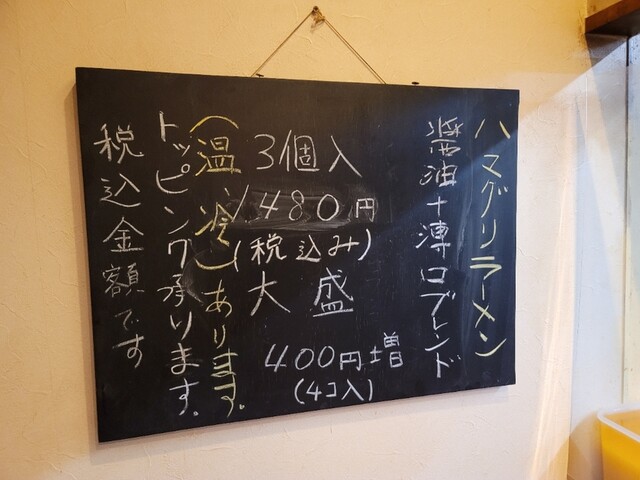 ハマグリラーメン
醤油+薄口ブレンド
3個入
1480円
(税込み)
大盛
400円増
(4コ入)
(温、冷)あります。
トッピング承ります。
税込金額です